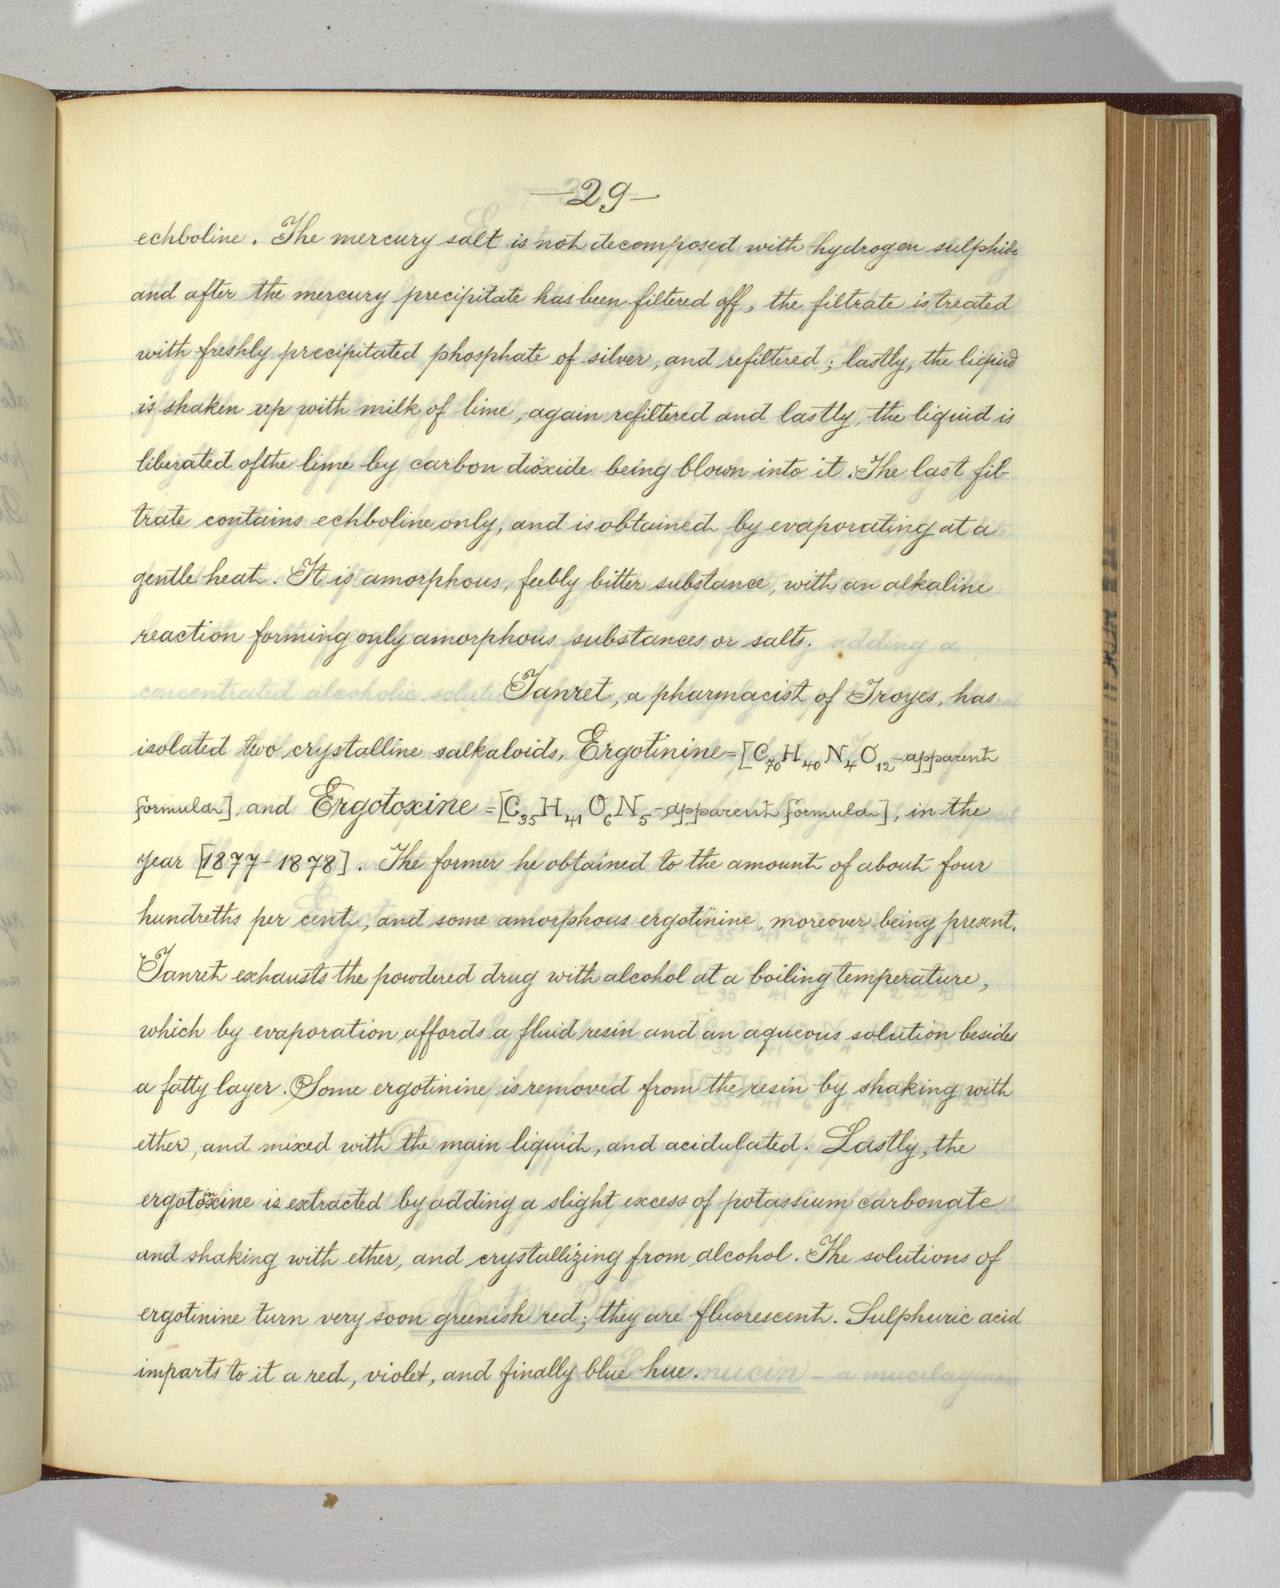 —29—
echboline. The mercury salt is not decomposed with hydrogen sulphide
and after the mercury precipitate has been filtered off, the filtrate is treated
with freshly precipitated phosphate of silver, and refiltered; lastly, the liquid
is shaken up with milk of lime, again refiltered and lastly, the liquid is
liberated of the lime by carbon dioxide being blown into it. The last fil-
trate contains echboline only, and is obtained by evaporating at a
gentle heat. It is amorphous, feebly bitter substance, with an alkaline
reaction forming only amorphous substances or salts.
Tanret, a pharmacist of Troyes, has
isolated two crystalline salkaloids, Ergotinine=[C70H40N4O12-apparent
formula] and Ergotoxine=[C35H41O6N5-apparent formula], in the
year [1877-1878]. The former he obtained to the amount of about four
hundreths per cent, and some amorphous ergotinine, moreover being present.
Tanret exhausts the powdered drug with alcohol at a boiling temperature,
which by evaporation affords a fluid resin and an aqueous solution besides
a fatty layer. Some ergotinine is removed from the resin by shaking with
ether, and mixed with the main liquid, and acidulated. Lastly, the
ergotoxine is extracted by adding a slight excess of potassium carbonate
and shaking with ether, and crystallizing from alcohol. The solutions of
ergotinine turn very soon greenish red; they are fluorescent. Sulphuric acid
imparts to it a red, violet, and finally blue hue.